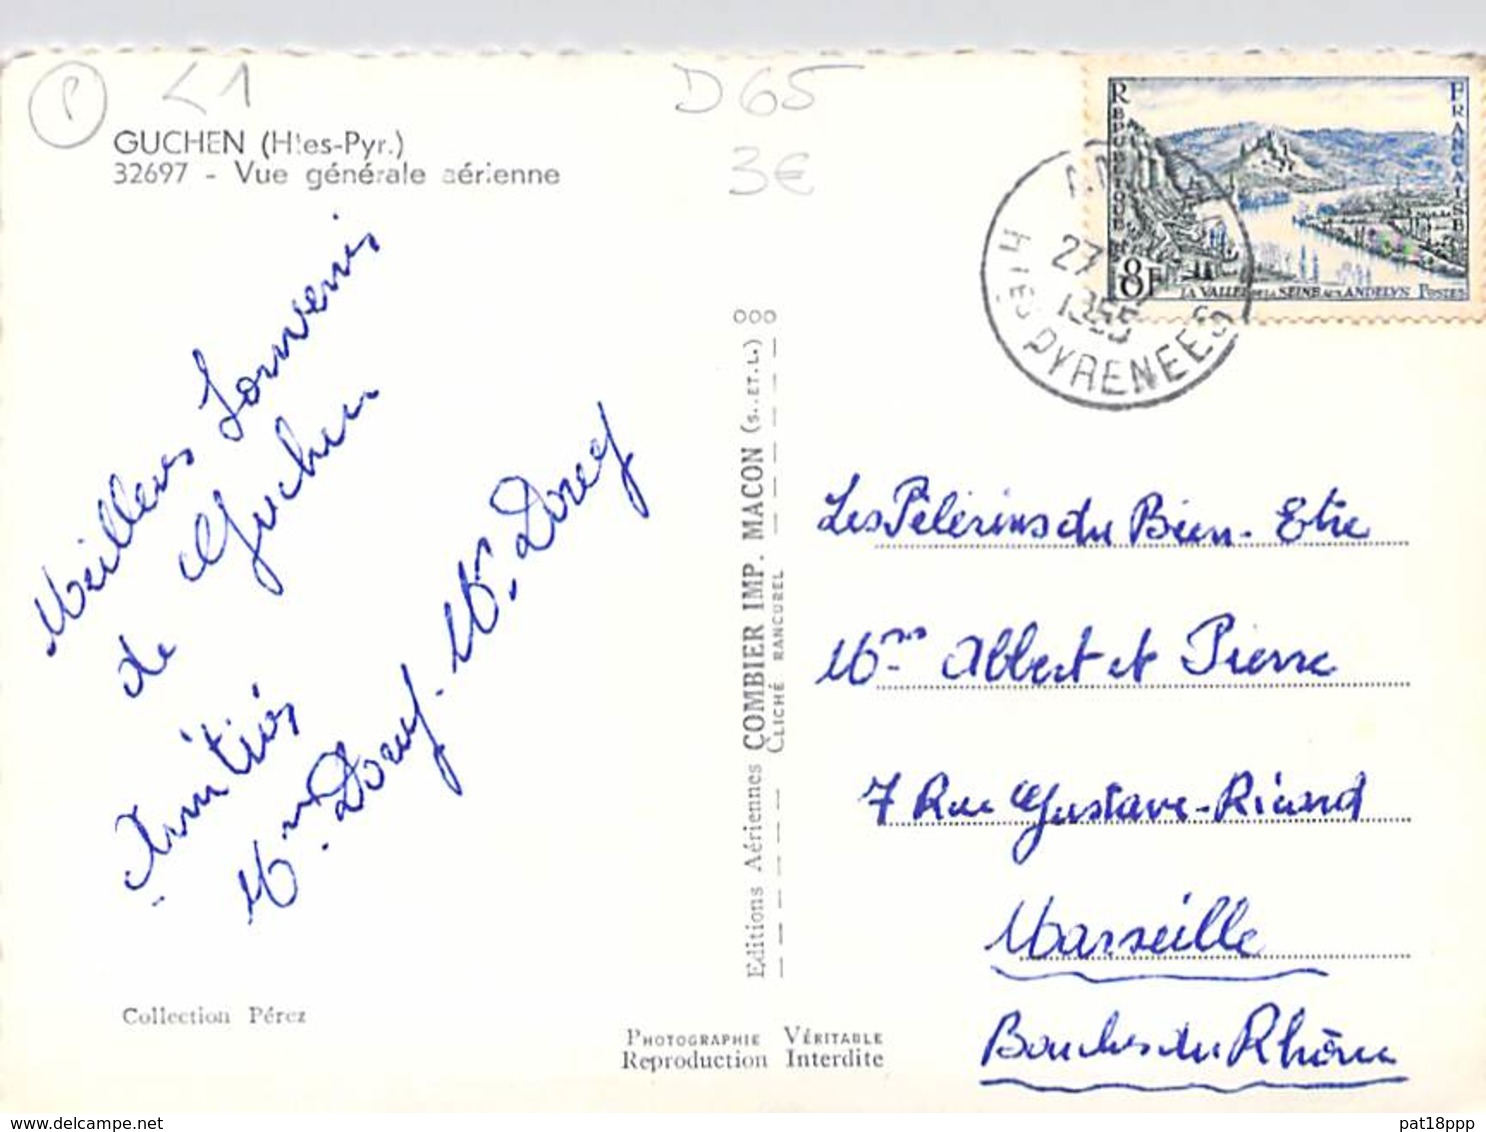 P
<1
D65
3€
GUCHEN (Htes-Pyr.)
32697 - Vue générale aérienne
Meilleurs Souvenirs
de Guchen
Amitiés
REPUBLIQUE
FRANCAISE
8F
LA VALLEE DE LA SEINE AUX ANDELYS POSTES
27
1955
Htes PYRENEES
000
Editions Aériennes COMBIER IMP. MACON (S.ET.L.)
CLICHÉ RANCUREL
Les Pèlerins du Bien-Etre
Mrs Albert et Pierre
7 Rue Gustave-Ricard
Marseille
Bouches du Rhône
Collection Pérez
PHOTOGRAPHIE VÉRITABLE
Reproduction Interdite
pat18ppp